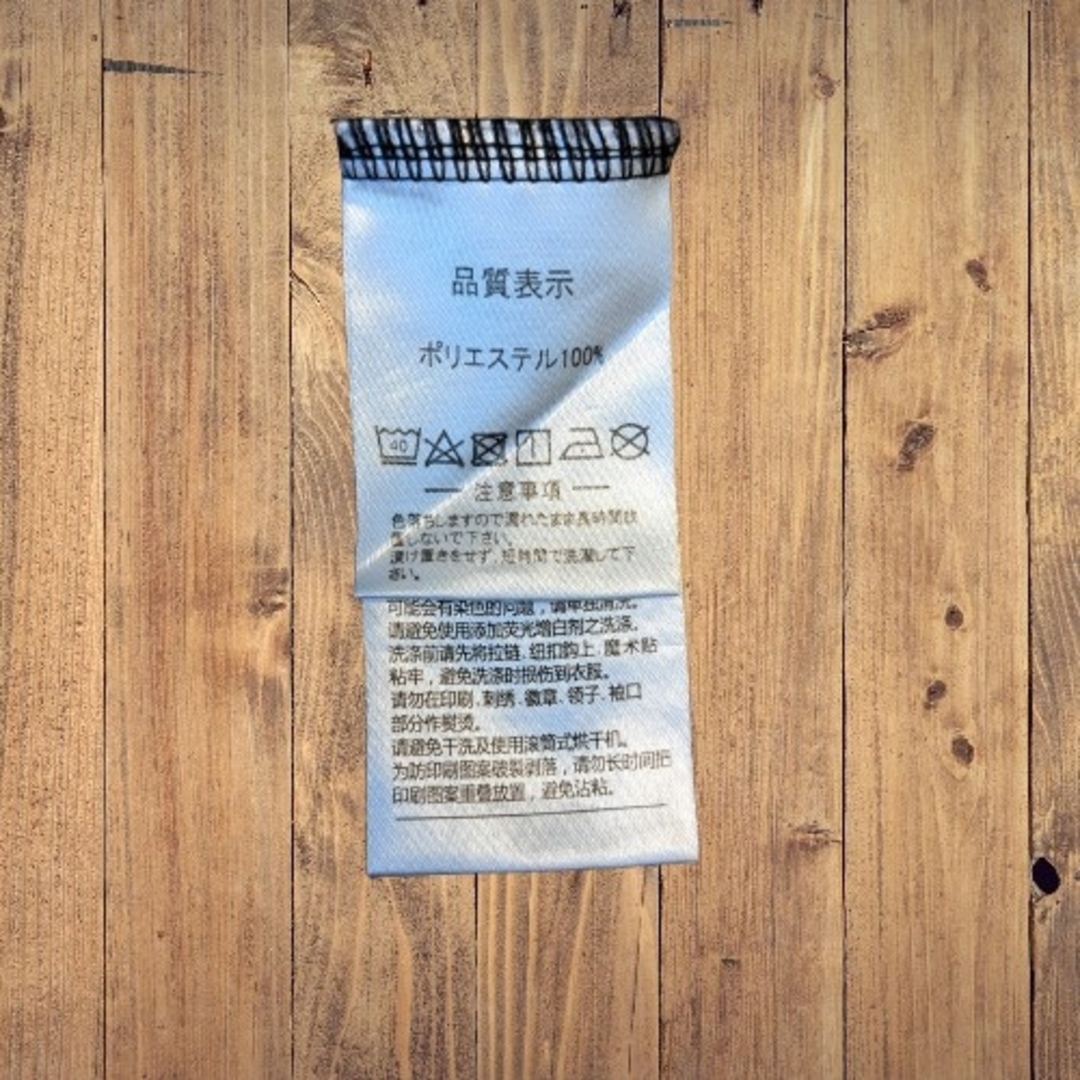 品質表示
ポリエステル100%
40
注意事項
色落ちしますので濡れたまま長時間放
置しないで下さい。
漬け置きをせず、短時間で洗濯して下
さい。
可能会有染色的问题，请单独清洗。
请避免使用添加荧光增白剂之洗涤。
洗涤前请先将拉链、纽扣钩上、魔术贴
粘牢，避免洗涤时损伤到衣服。
请勿在印刷、刺绣、徽章、领子、袖口
部分作熨烫。
请避免干洗及使用滚筒式烘干机。
为防印刷图案破裂剥落，请勿长时间把
印刷图案重叠放置，避免沾粘。